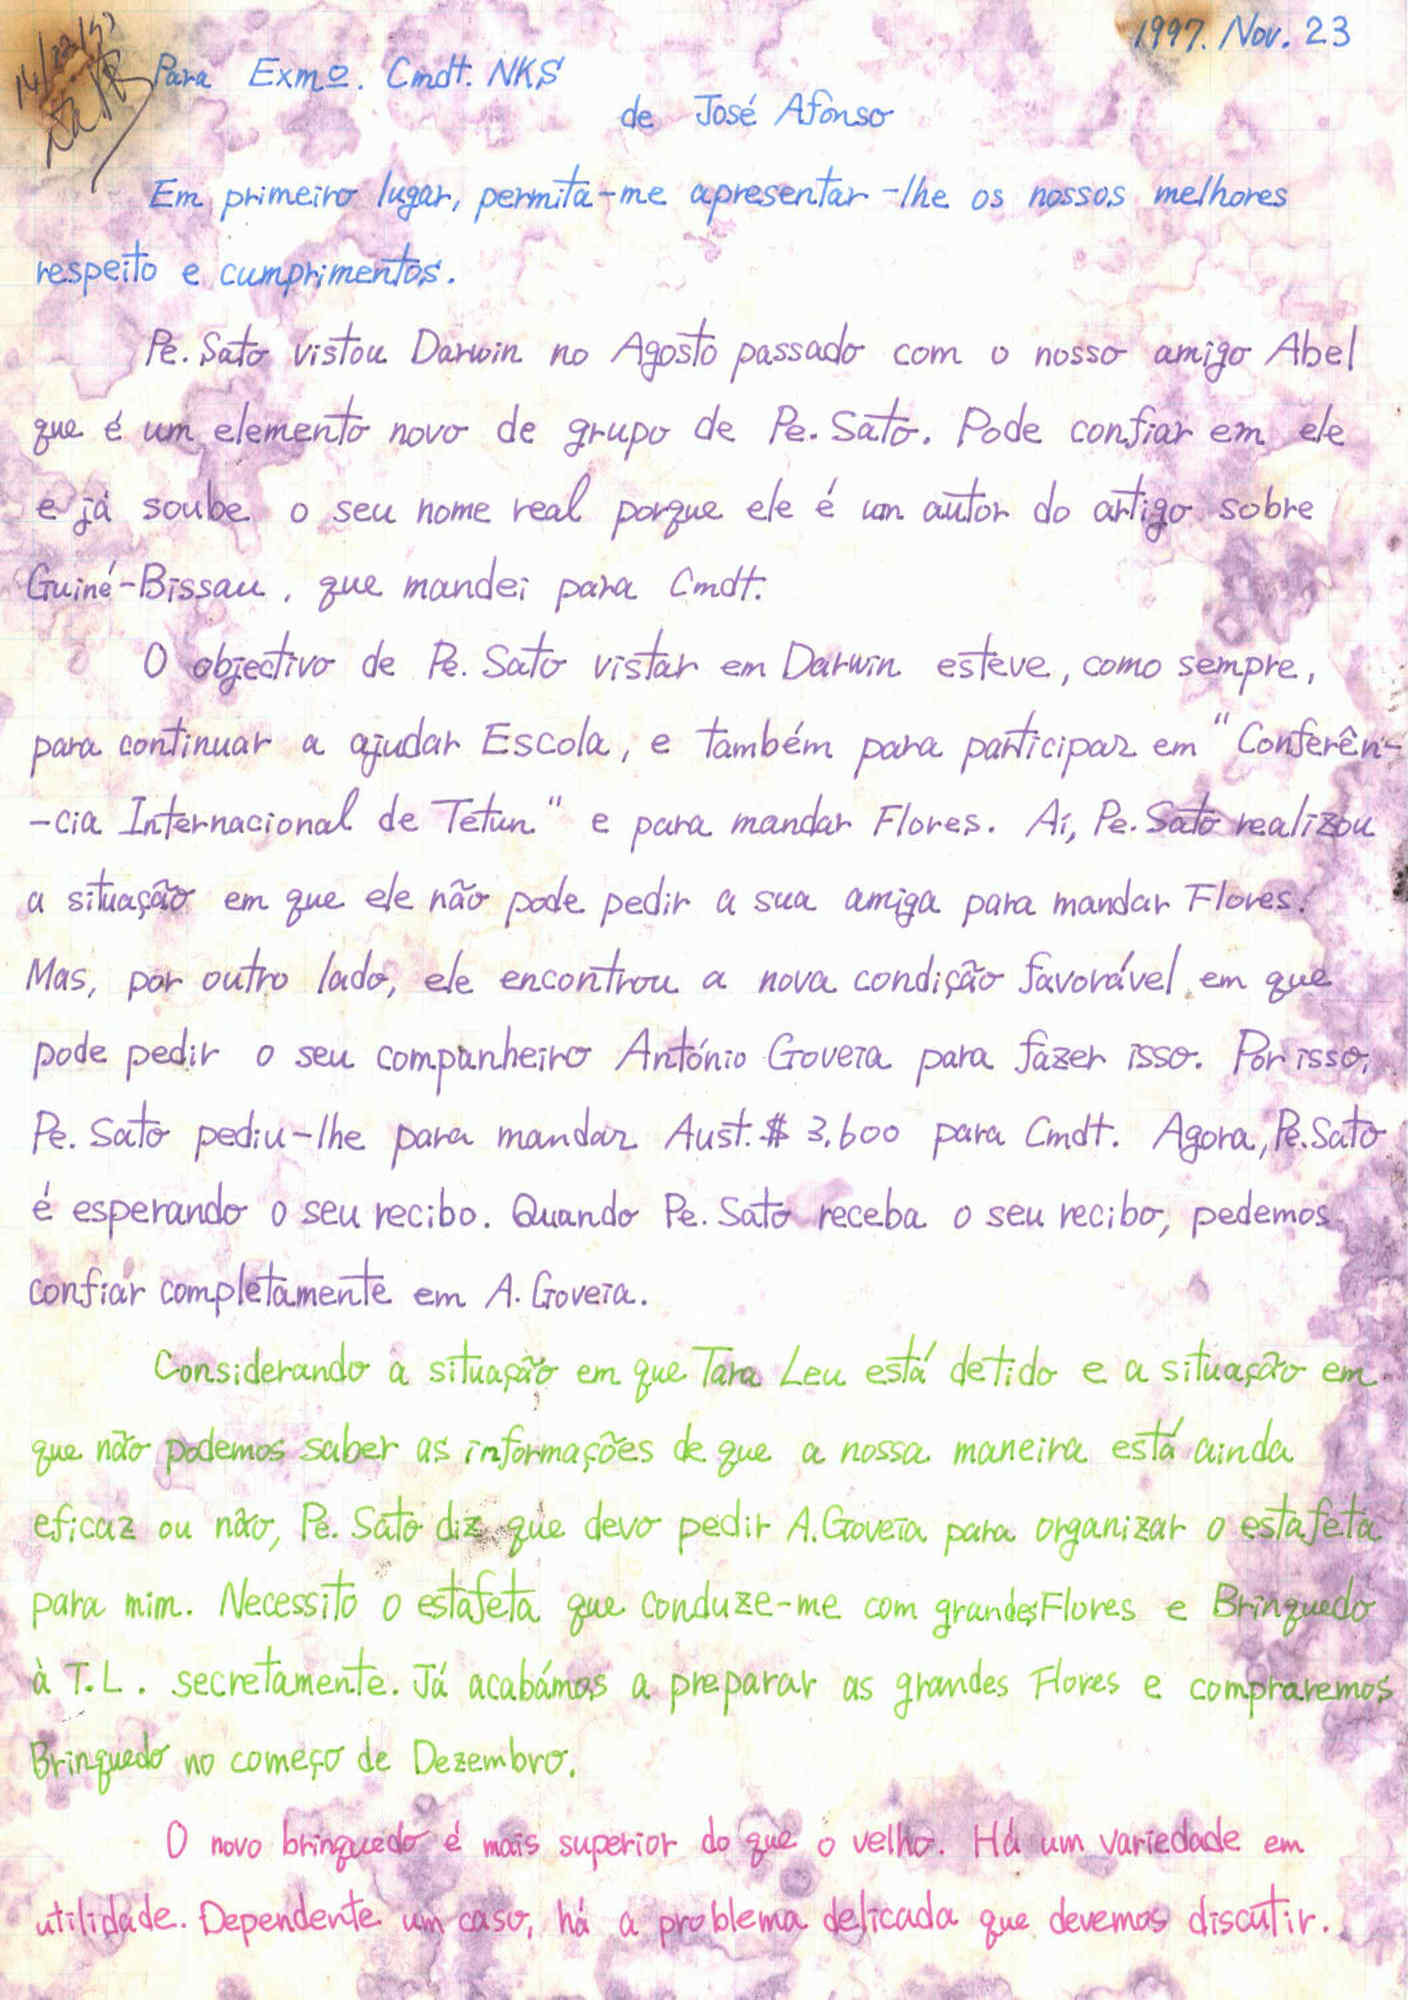 1997. Nov. 23
Para Exmo. Cmdt. NKS
de José Afonso
Em primeiro lugar, permita-me apresentar-lhe os nossos melhores
respeito e cumprimentos.
Pe. Sato vistou Darwin no Agosto passado com o nosso amigo Abel
que é um elemento novo de grupo de Pe. Sato. Pode confiar em ele
e já soube o seu nome real porque ele é um autor do artigo sobre
Guiné-Bissau, que mandei para Cmdt.
O objectivo de Pe. Sato vistar em Darwin esteve, como sempre,
para continuar a ajudar Escola, e também para participar em "Conferên-
-cia Internacional de Tetun" e para mandar Flores. Aí, Pe. Sato realizou
a situação em que ele não pode pedir a sua amiga para mandar Flores.
Mas, por outro lado, ele encontrou a nova condição favorável em que
pode pedir o seu companheiro António Goveia para fazer isso. Por isso,
Pe. Sato pediu-lhe para mandar Aust.$ 3.600 para Cmdt. Agora, Pe. Sato
é esperando o seu recibo. Quando Pe. Sato receba o seu recibo, pedemos
confiar completamente em A. Goveia.
Considerando a situação em que Tara Leu está detido e a situação em
que não podemos saber as informações de que a nossa maneira está ainda
eficaz ou não, Pe. Sato diz que devo pedir A. Goveia para organizar o estafeta
para mim. Necessito o estafeta que conduze-me com grandes Flores e Brinquedo
à T.L. secretamente. Já acabámos a preparar as grandes Flores e compraremos
Brinquedo no começo de Dezembro.
O novo brinquedo é mais superior do que o velho. Há um variedade em
utilidade. Dependente um caso, há a problema delicada que devemos discutir.